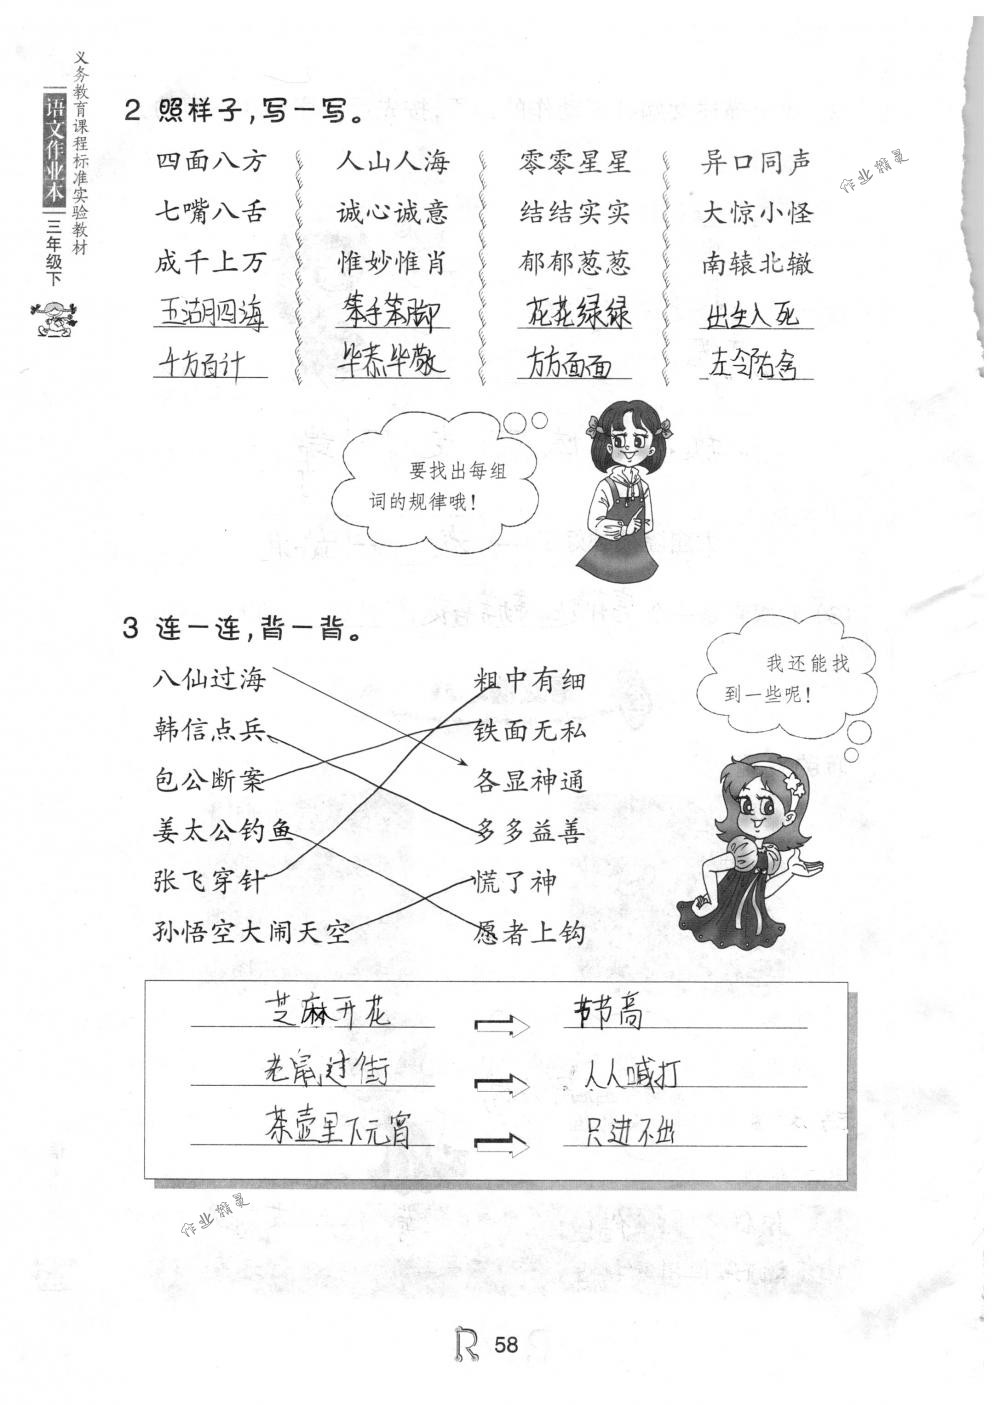 义务教育课程标准实验教材
语文作业本
三年级下
2 照样子,写一写。
四面八方 人山人海 零零星星 异口同声
作业精灵
七嘴八舌 诚心诚意 结结实实 大惊小怪
成千上万 惟妙惟肖 郁郁葱葱 南辕北辙
五湖四海 笨手笨脚 花花绿绿 出生入死
千方百计 毕恭毕敬 方方面面 左邻右舍
要找出每组
词的规律哦!
3 连一连,背一背。
我还能找
到一些呢!
八仙过海 粗中有细
韩信点兵 铁面无私
包公断案 各显神通
姜太公钓鱼 多多益善
张飞穿针 慌了神
孙悟空大闹天空 愿者上钩
芝麻开花 节节高
老鼠过街 人人喊打
茶壶里下元宵 只进不出
作业精灵
R 58